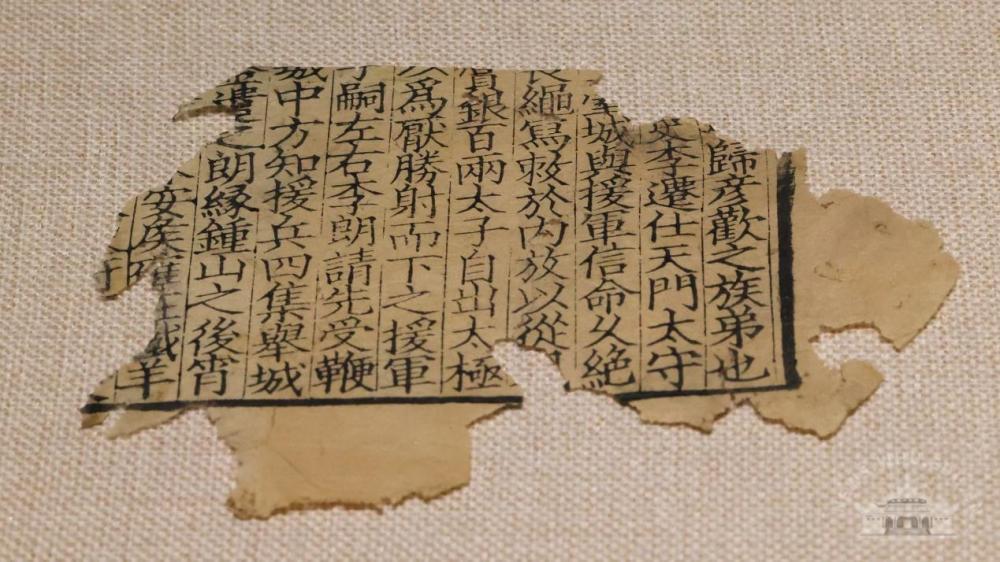 歸彦歡之族弟也
史李遷仕天門太守
城與援軍信命久絶
長繩寫敕於内放以從
賞銀百兩太子自出太極
爲厭勝射而下之援軍
子嗣左右李朗請先受鞭
城中方知援兵四集舉城
遣之朗緣鍾山之後宵
安侯確 鐵羊